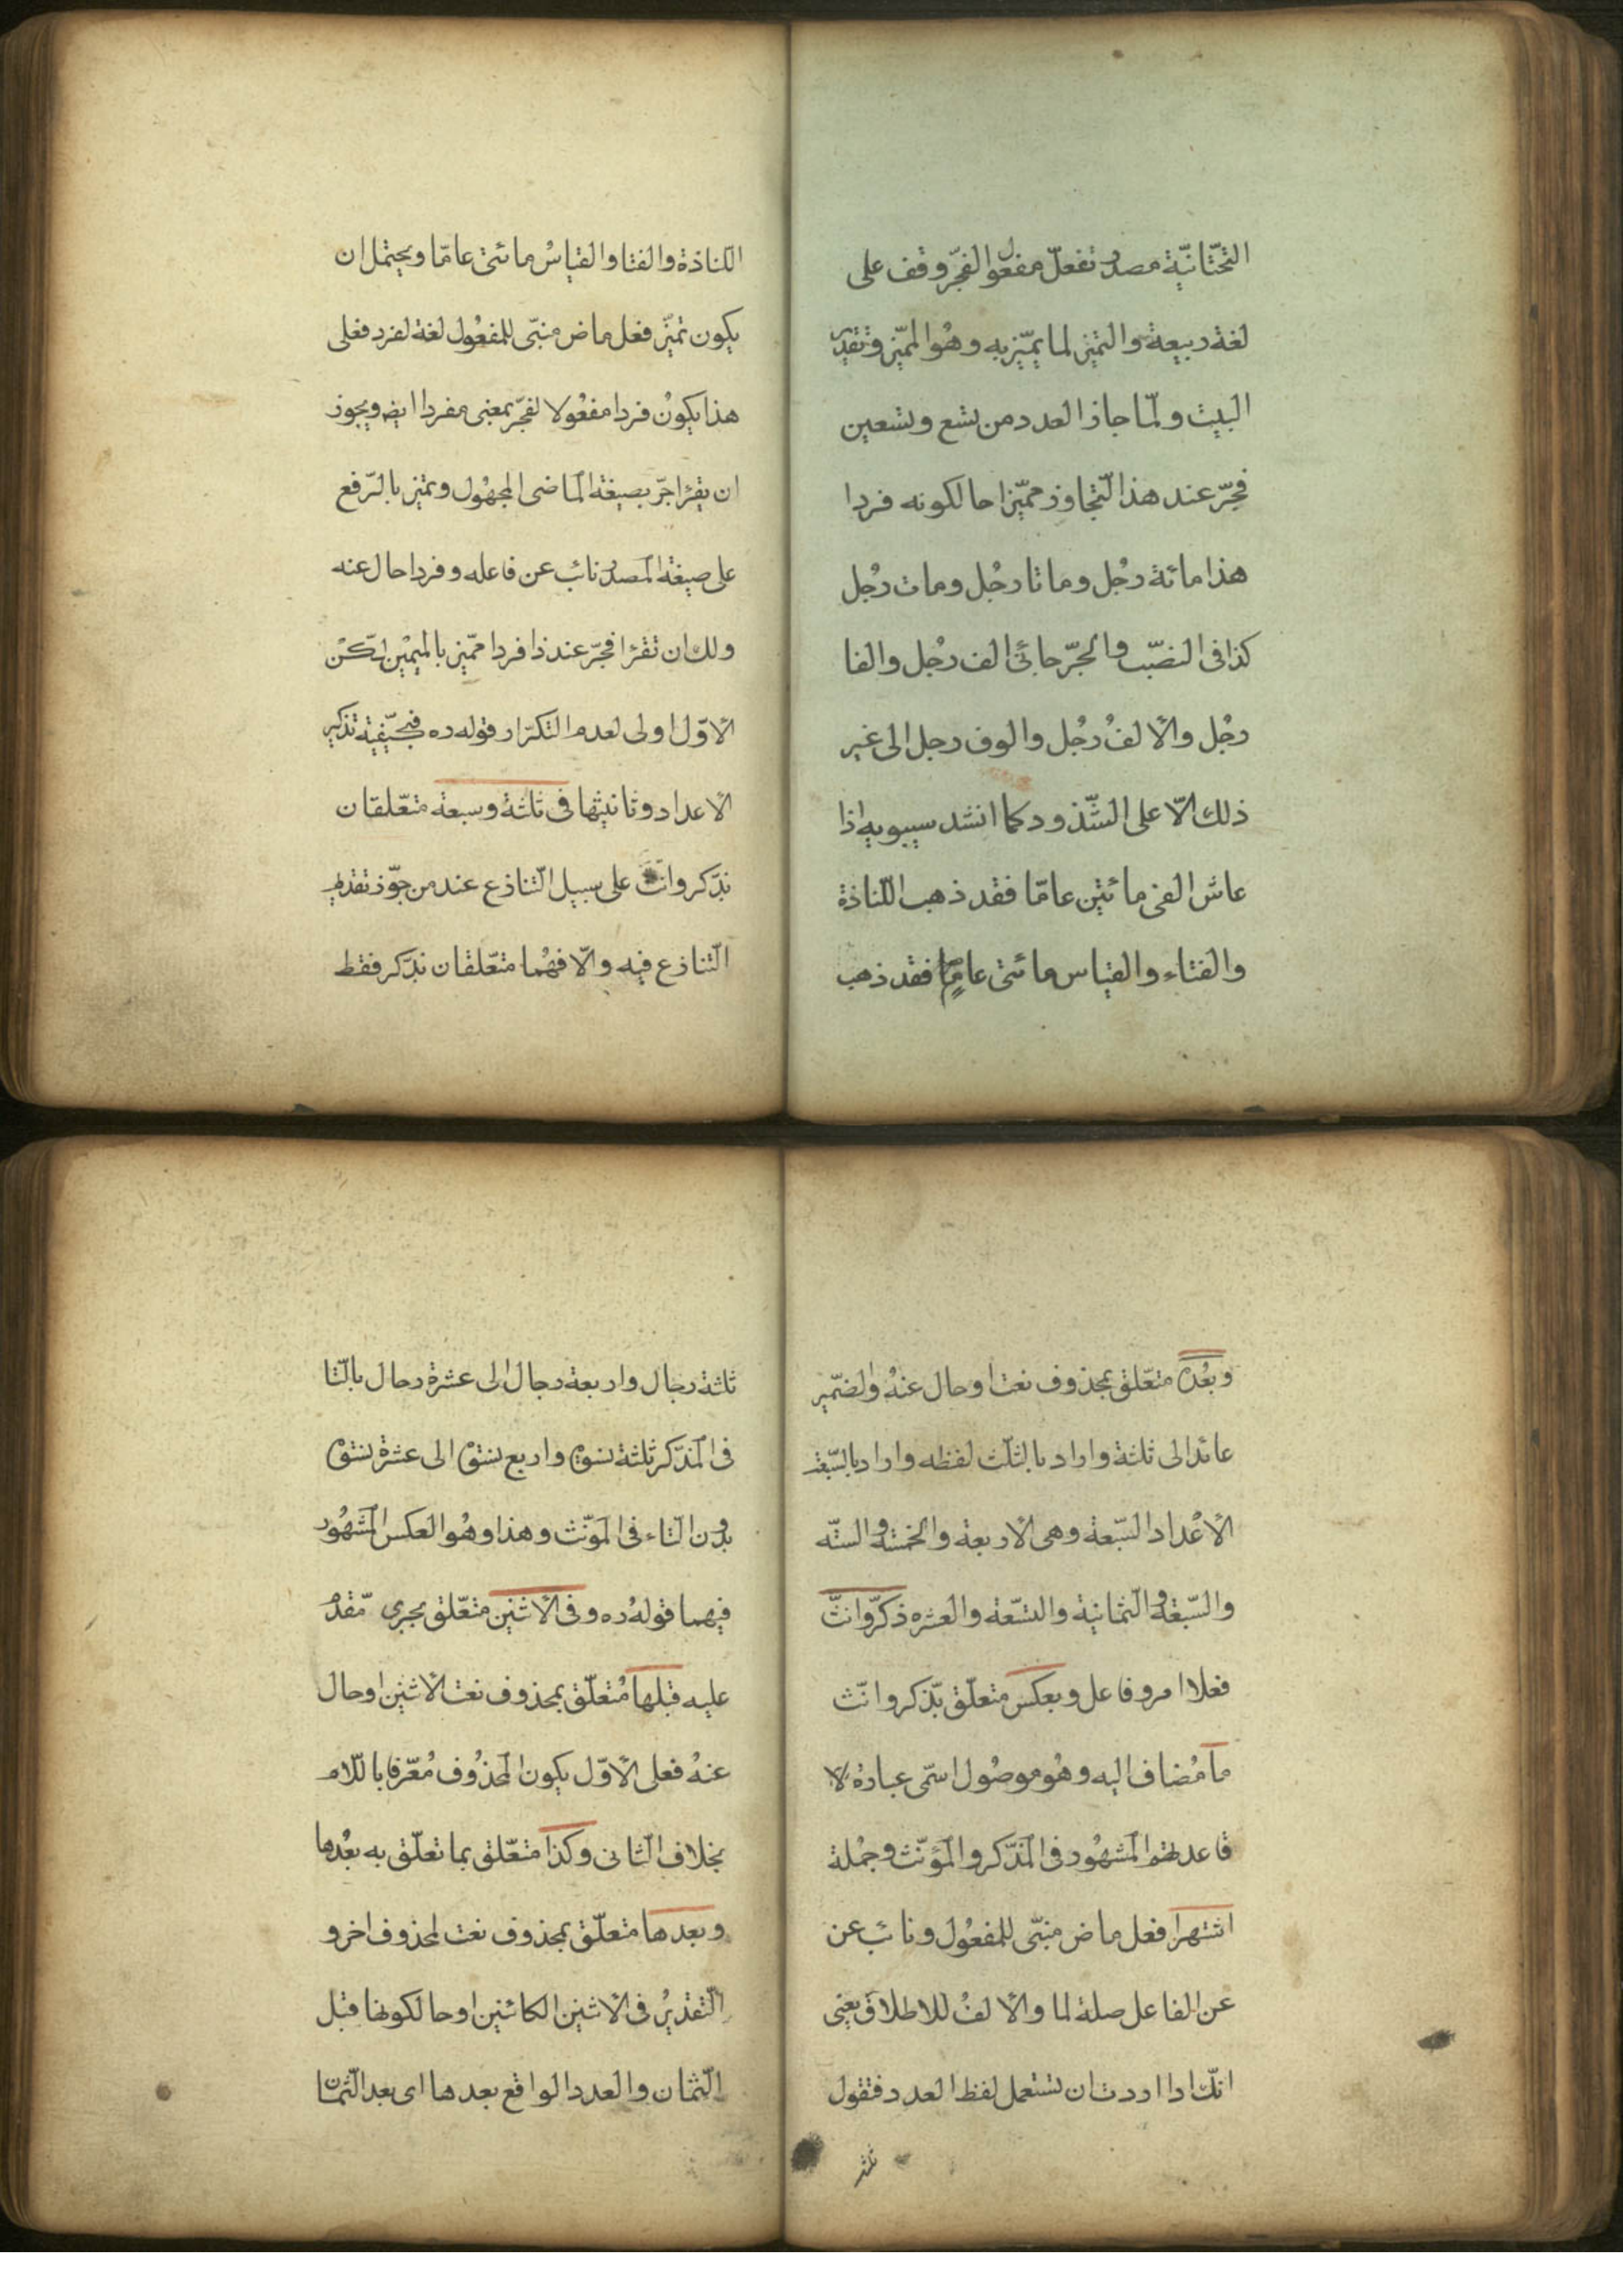 التحتانيّة مصدر تفعلّ مفعول الفجرّ وقف على
لغة ربيعة والتميز لما يميّز به وهُو المميّز وتقدير
البيت ولمّا جاز العدد من تسع وتسعين
فجرّ عند هذا التّجاوز مميّزا حا لكونه فردا
هذا مائة رجُل وماتا رجُل ومات رجُل
كذا فى النصّب والجرّ جائى الف رجُل والفا
رجُل والألفُ رجُل والوف رجل الى غير
ذلك الّا على الشّذود كما انشد سيبويه اذا
عاش الفى مائتين عامّا فقد ذهب اللّناذة
والفتاء والقياس مائتى عام فقد ذهب
اللناذة والفتا والقياسُ مائتى عامّا ويحتمل ان
يكون تميّز فعل ماض مبنّى للمفعُول لغة لفرد فعلى
هذا يكونُ فردا مفعُولا لفجرّ بمعنى مفردا ايضه ويجوز
ان يقرا جرّ بصيغة الماضى المجهُول وتميز بالرّفع
على صيغة المصدر نائب عن فاعله وفردا حال عنه
ولك ان تقرا فجرّ عند ذا فردا مميّز بالميمين لكن
الأوّل اولى لعدم التكرّار قوله ره تذكير
الأعداد وثانيثها فى ثلثة وسبعة متعّلقان
بذّكر وانث على سبيل التّنازع عند من جوّز تقديم
التّنازع فيه والّا فهُما متعّلقان بذّكر فقط
وبعُده متعّلق بمحذوف نعت اوحال عنهُ والضمّير
عائد الى ثلثة واراد بالثلث لفظه واراد بالسّبعة
الأعْداد السّبعة وهى الاربعة والخمسة والستّه
والسّبعة والثمانية والتسّعة والعشره ذكرّ وانثّ
فعلا امر وفاعل وبعكس متعلّق بذّكر وانّث
ما مُضاف اليه وهُو موصُول اسمّى عبارة لا
قاعدلهم المشهُور فى المذّكر والمؤنّث وجمُلة
اشتهرا فعل ماض مبنّى للمفعُول ونائب عن
عن الفاعل صلة لما والألفُ للاطلاق يعنى
انّك اذا اردت ان تستعمل لفظ العدد فتقول
ثلثه
ثلثة رجال واربعة رجال الى عشرة رجال بالّتا
فى المذّكر ثلثة نسوة واربع نسوة الى عشرة نسوة
بدون التاء فى المؤنّث وهذا وهُو العكس المشهُور
فيهما قولهُ ره وفى الأثنين متعّلق بجرى مّقدم
عليه قبلها مُتعلّق بمحذوف نعت الأثنين اوحال
عنهُ فعلى الأوّل يكون المحذُوف مُعرّفا باللّام
بخلاف الثانى وكذا متعّلق بما تعلّق به بعُدها
وبعدها متعلّق بمحذوف نعت لمحذوف اخر و
التّقديرُ فى الأثنين الكائنين اوحا لكونها قبل
الثّمان والعدد الواقع بعدها اى بعد الثّمان